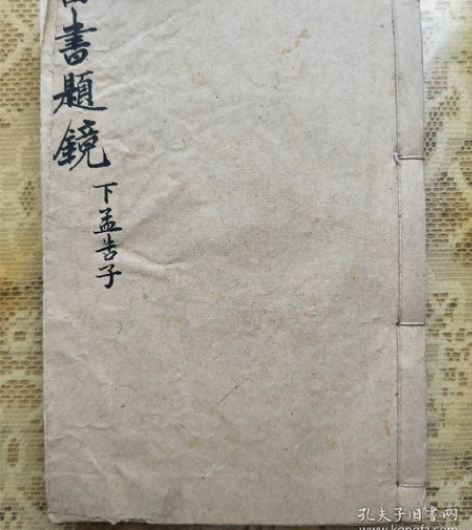 書題鏡
下孟告子
孔夫子旧书网
www.kongfz.com